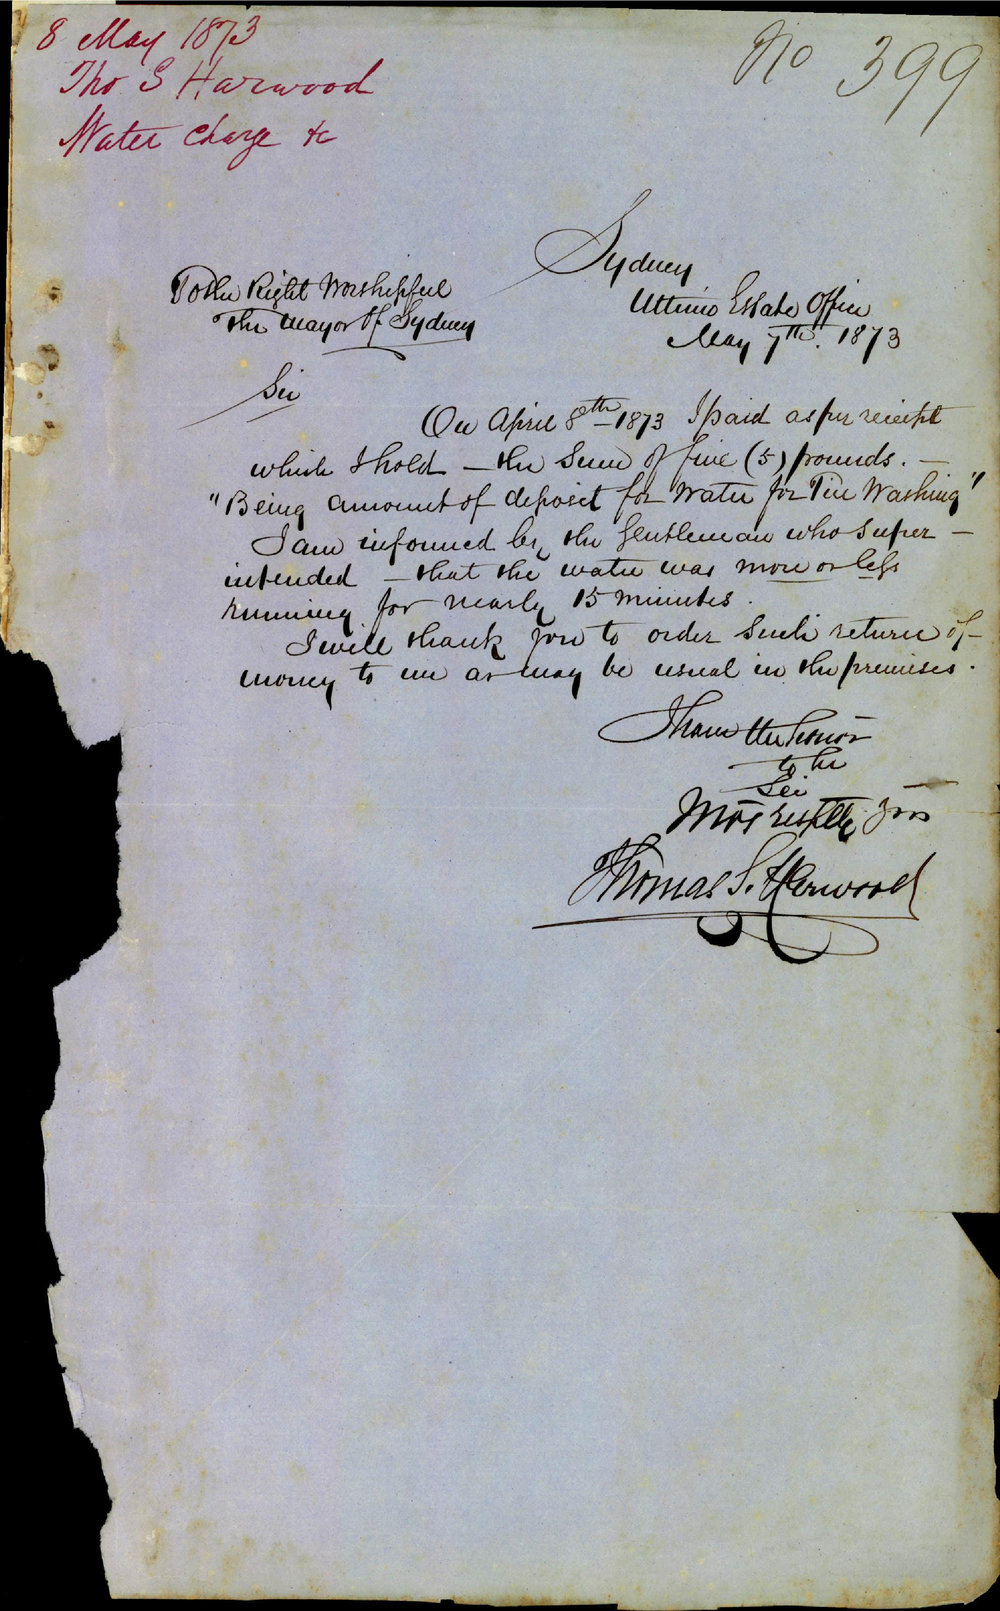 8 May 1873
Tho S Harwood
Water Charge &c
No 399
Sydney
Ultimo Estate Office
May 7th. 1873
To the Right Worshipful
The Mayor of Sydney
Sir
On April 8th 1873 I paid as per receipt
which I hold — the Sum of five (5) pounds. —
"Being amount of deposit for Water for Tin Washing"
I am informed by the Gentleman who Super —
intended — that the water was more or less
running for nearly 15 minutes.
I will thank you to order Such return of
money to me as may be usual in the premises.
I have the honor
to be
Sir
Most respttly yrs
Thomas S. Harwood